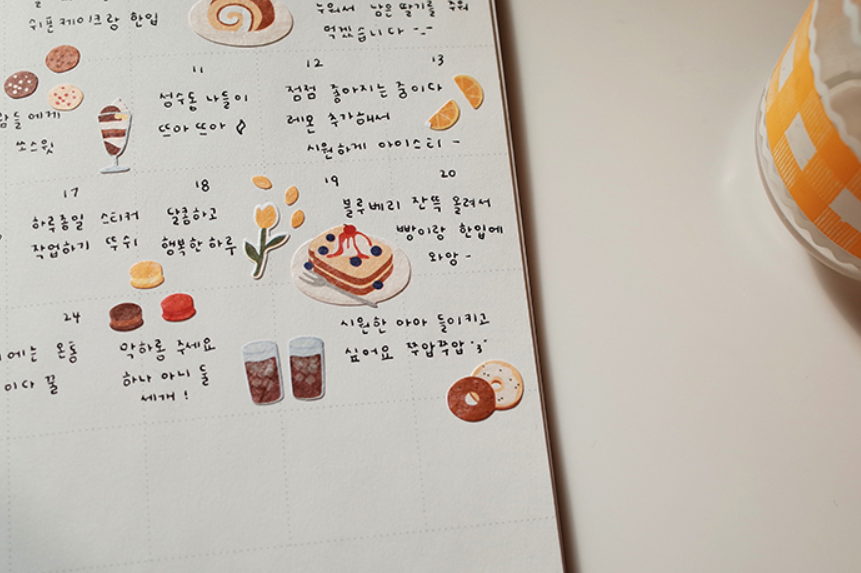 쉬폰케이크랑 한입
누워서 남은 딸기를 주워
먹겠습니다 -_-
11
12
13
성수동 나들이
뜨아 뜨아
점점 좋아지는 중이다
레몬 추가해서
시원하게 아이스티 ~
들에게
쏘스윗
17
18
19
20
하루종일 스티커
작업하기 뚜쉬
달콤하고
행복한 하루
블루베리 잔뜩 올려서
빵이랑 한입에
와앙 ~
24
에는 온통
이다 꿀
악하롱 주세요
하나 아니 둘
세개 !
시원한 아아 들이키고
싶어요 쭈압쭈압 '3'